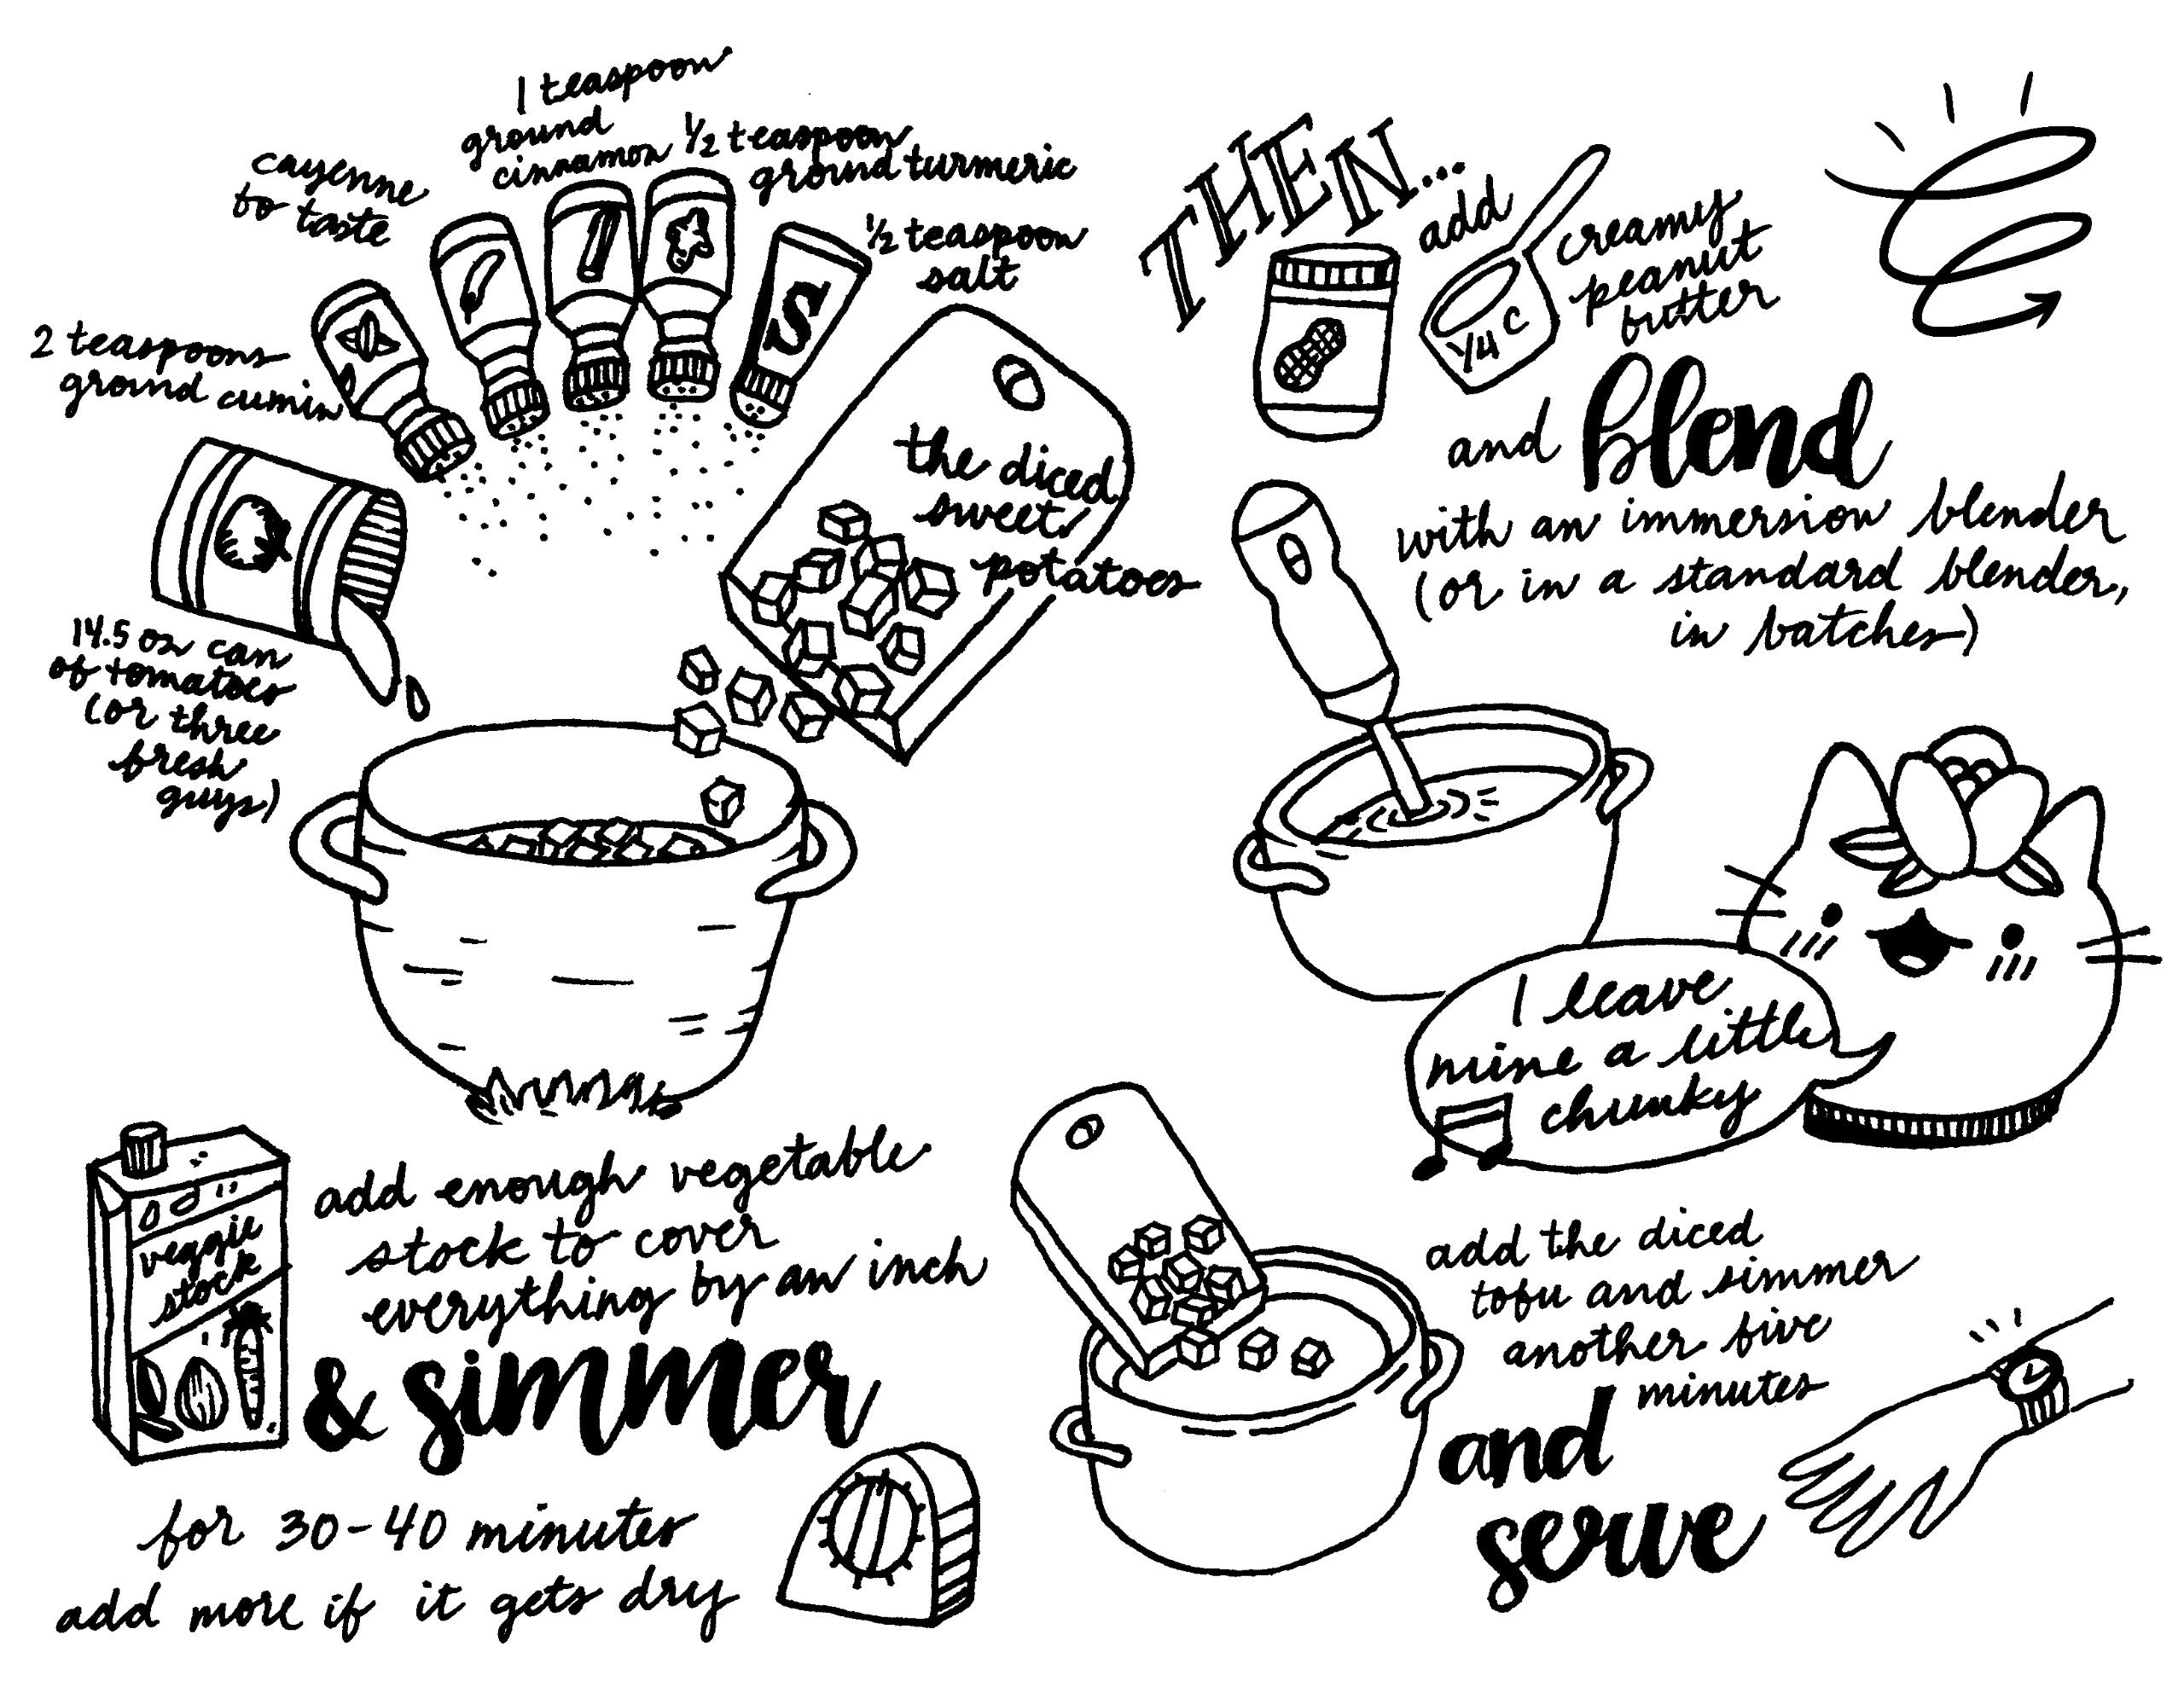 1 teaspoon
ground
cinnamon
½ teaspoon
ground turmeric
cayenne
to taste
½ teaspoon
salt
2 teaspoons
ground cumin
S
the diced
sweet
potatoes
14.5 oz can
of tomatoes
(or three
fresh
guys)
veggie
stock
add enough vegetable
stock to cover
everything by an inch
& simmer
for 30-40 minutes
add more if it gets dry
THEN...
add
¼ C
creamy
peanut
butter
and blend
with an immersion blender
(or in a standard blender,
in batches)
I leave
mine a little
chunky
add the diced
tofu and simmer
another five
minutes
and
serve